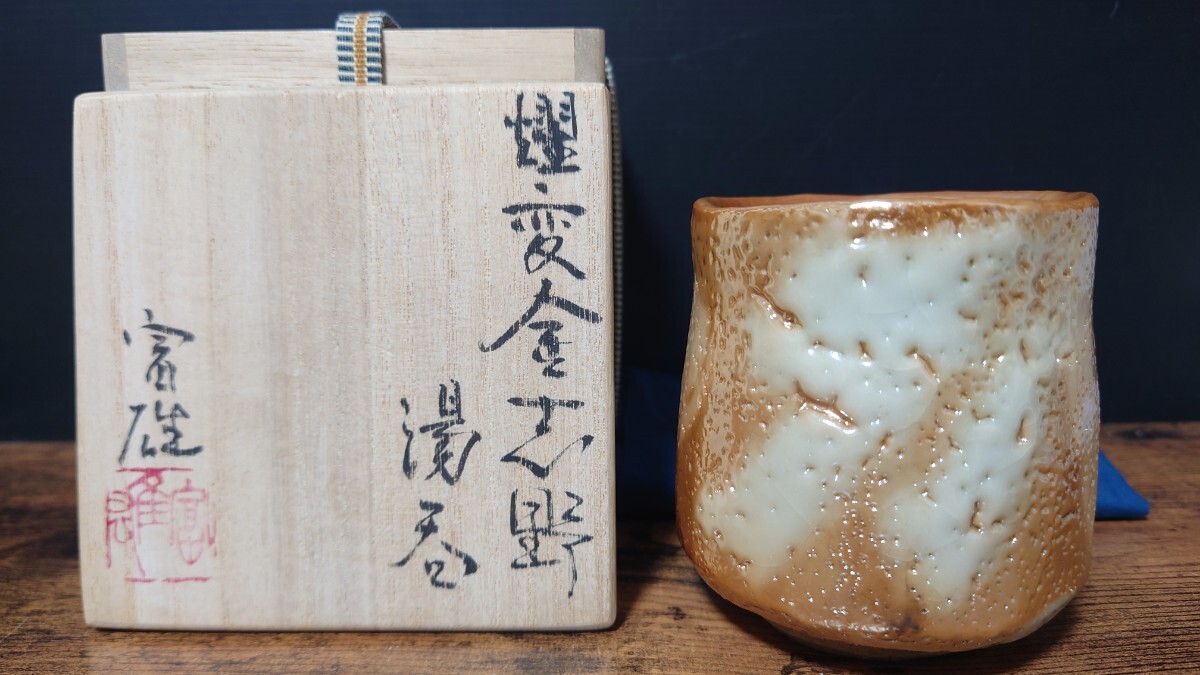 燿変金志野
湯呑
富雄